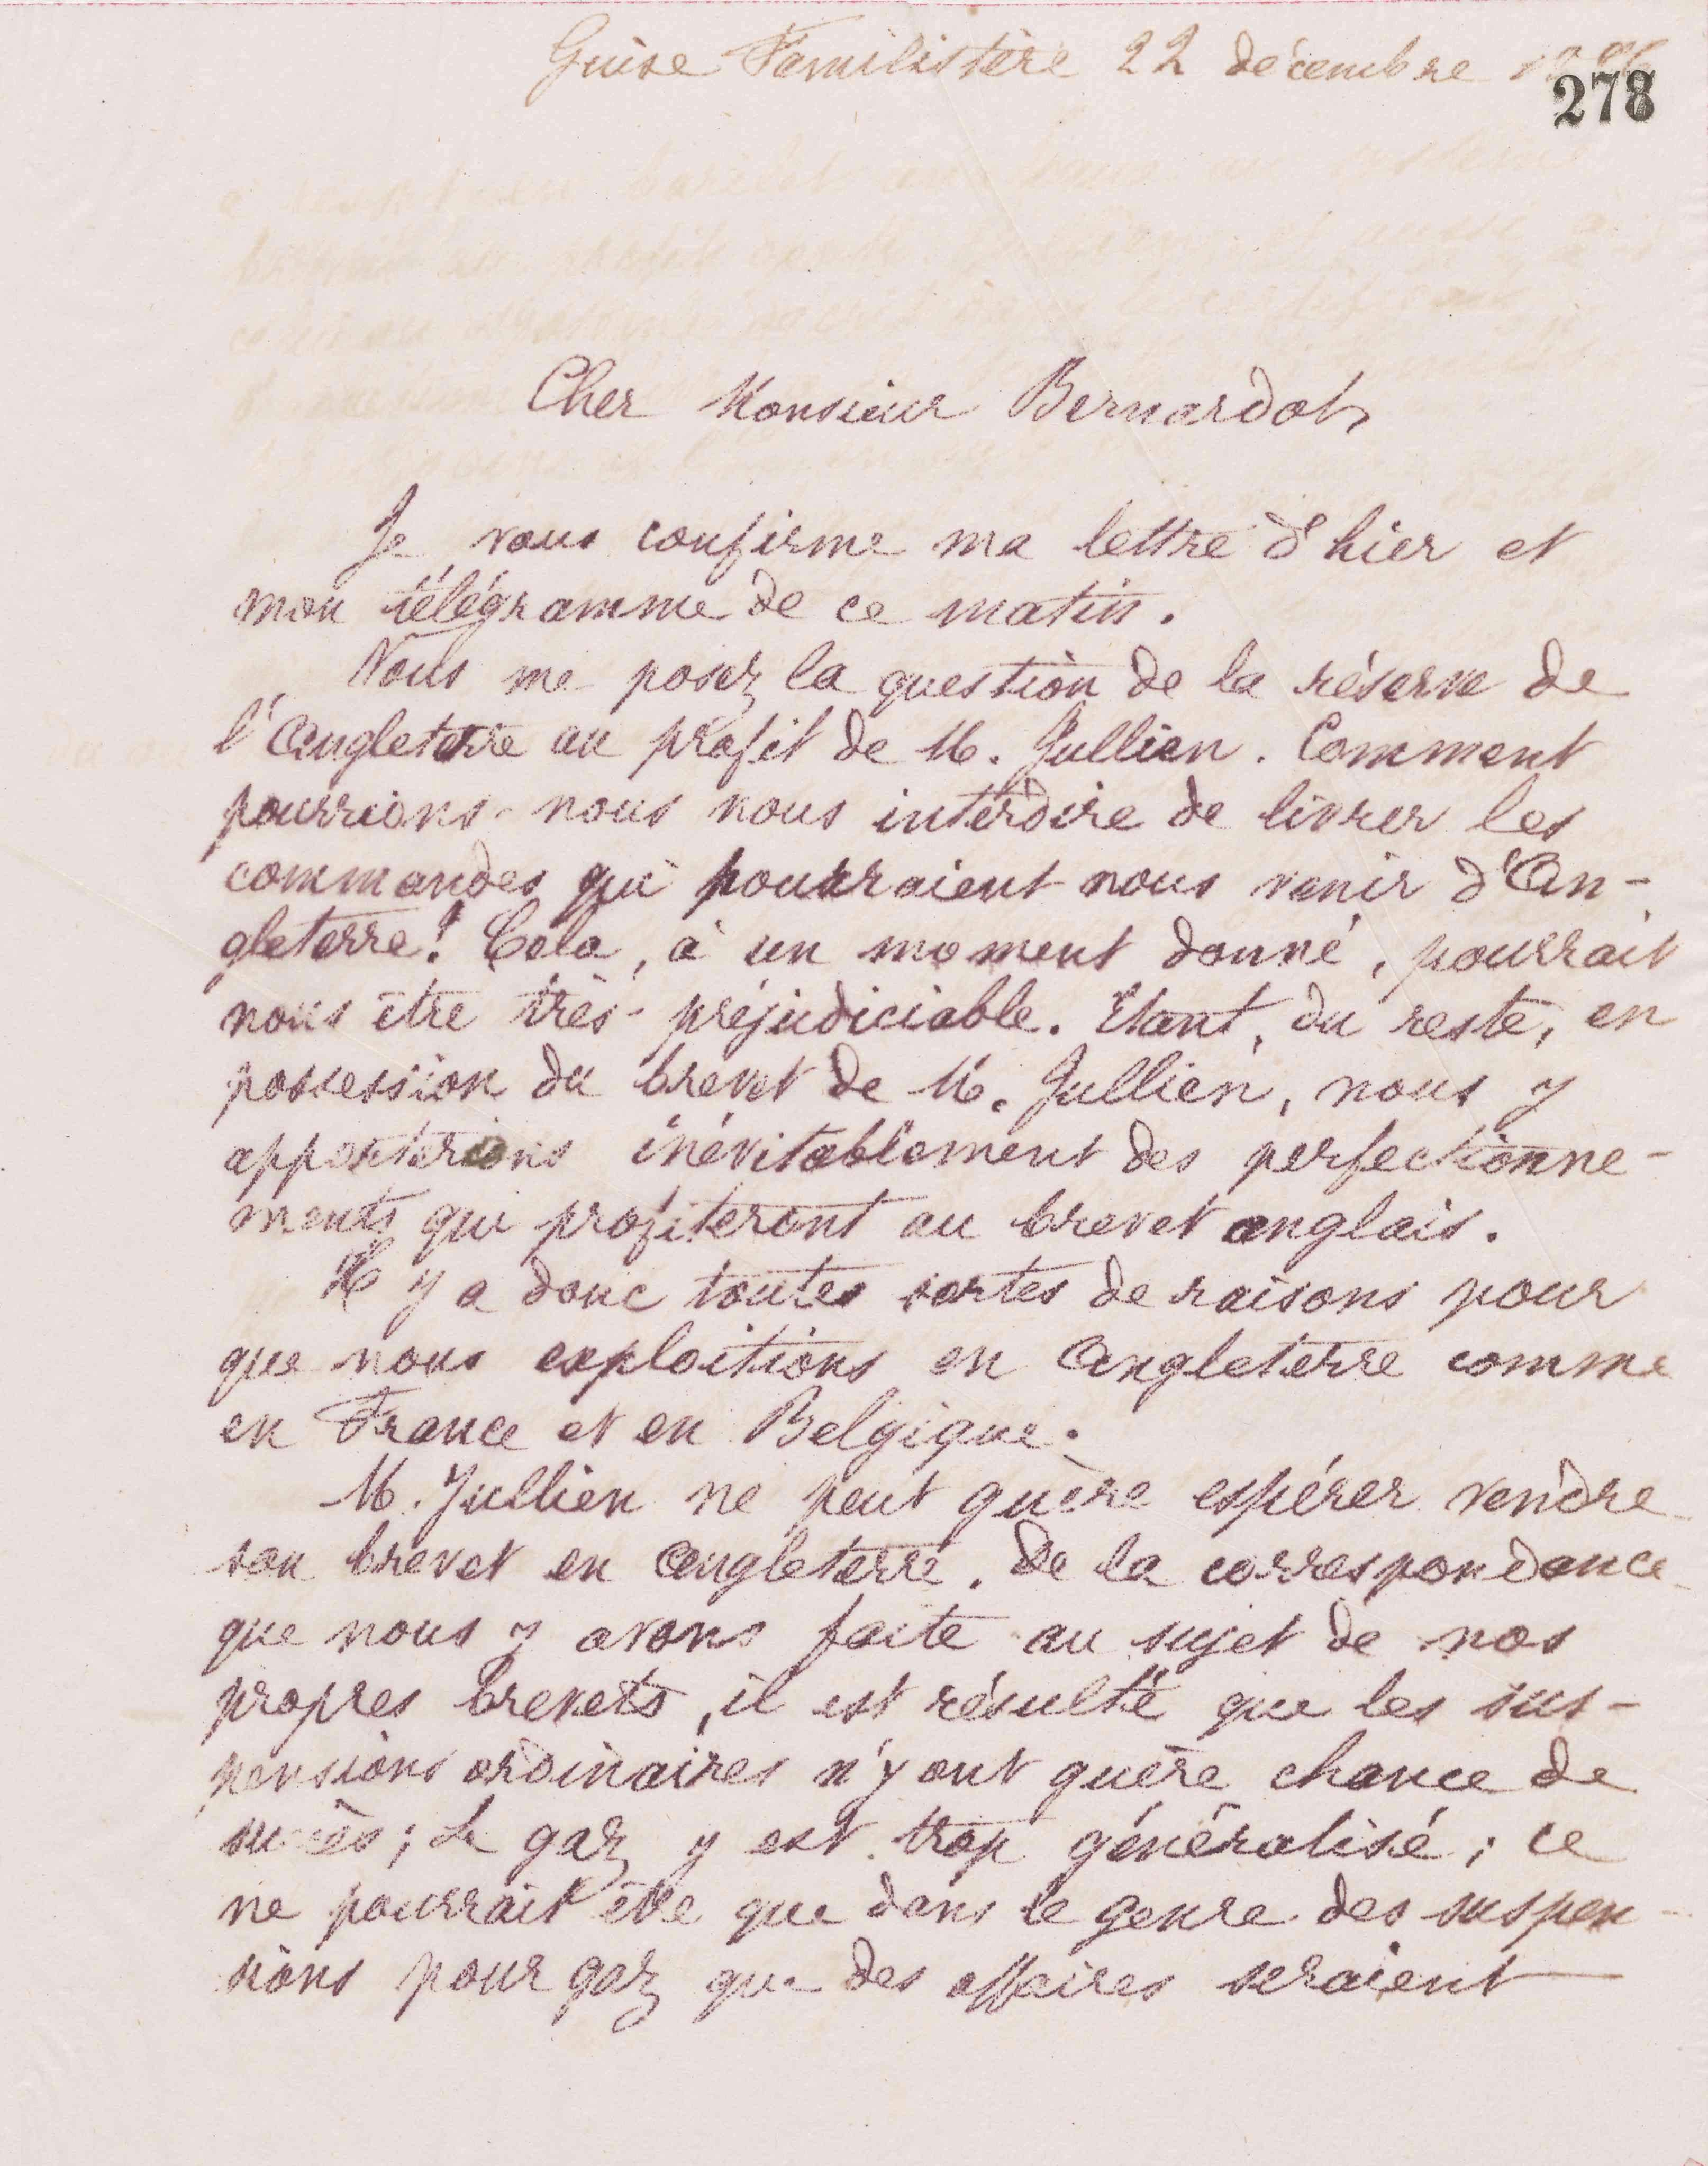 Guise Familistère 22 décembre
278
Cher Monsieur Bernardot,
Je vous confirme ma lettre d'hier et
mon télégramme de ce matin.
Vous me posez la question de la réserve de
l'Angleterre au profit de M. Jullien. Comment
pourrions-nous nous interdire de livrer les
commandes qui pourraient nous venir d'An-
gleterre? Cela, à un moment donné, pourrait
nous être très-préjudiciable. Etant, du reste, en
possession du brevet de M. Jullien, nous y
apporterions inévitablement des perfectionne-
ments qui profiteront au brevet anglais.
Il y a donc toutes sortes de raisons pour
que nous exploitions en Angleterre comme
en France et en Belgique.
M. Jullien ne peut guère espérer vendre
son brevet en Angleterre. De la correspondance
que nous y avons faite au sujet de nos
propres brevets, il est résulté que les sus-
pensions ordinaires n'y ont guère chance de
succès; le gaz y est trop généralisé; ce
ne pourrait être que dans le genre des suspen-
sions pour gaz que des affaires seraient